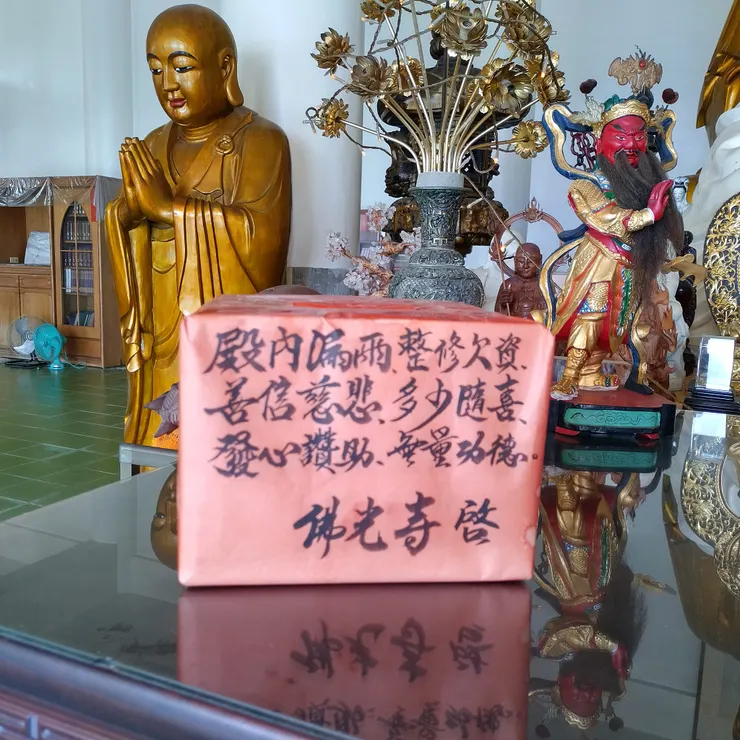 殿內漏雨、整修欠資、
善信慈悲、多少隨喜、
發心讚助、無量功德。
佛光寺 啓